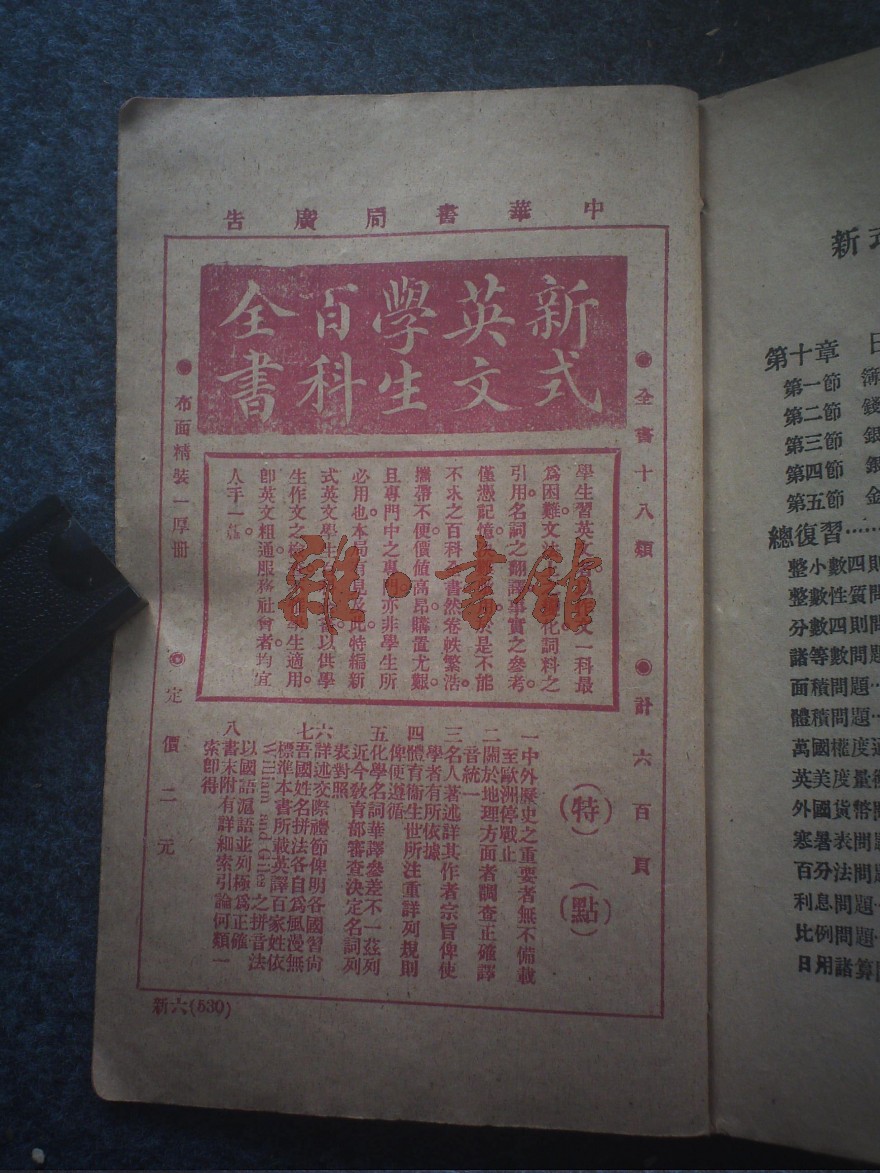 中華書局廣告
新式
英文
學生
百科
全書
◉全書十八類 ◉計六百頁
學生習英文一科最
爲困難文化詞料之
引用名詞之翻譯事實之參考。
僅憑記憶於是不能
不求之百科全書然卷帙繁浩。
攜帶不便價値高昂購置尤艱。
且專門中之專亦非學生所
必用也。本局有見及此特編新
式英文學生以供學
生作文之學生適用。
卽英文粗通服務社會者均宜
人手一編。
(特)(點)
一中外歷史之重要者無不備載
至歐洲停戰止
二關於地理方面者調查正確譯
音統一
三名人著述詳其作者宗旨俾使
學者有所依據
四體育衞生世所注重詳列規則
俾便遵循
五化學名詞華譯參差不一茲列
近今敎育部審查決定名詞列
表對照
六詳述交際禮節俾明各國習尙
七吾國姓名拼法各自爲風漫無
標準本書所載英譯百家姓依
William and Giles 之拼音法
以國語滬語並列極爲正確
八書末附有詳細索引論何類一
索卽得
◉布面精裝一厚冊 ◉定價二元
新六(530)
雅·書館
新式
第十章 日
第一節 簿
第二節 錢
第三節 銀
第四節 銀
第五節 金
總復習……
整小數四則
整數性質問
分數四則問
諸等數問題
面積問題…
體積問題…
萬國權度通
英美度量衡
外國貨幣問
寒暑表問題
百分法問題
利息問題…
比例問題…
日用諸算